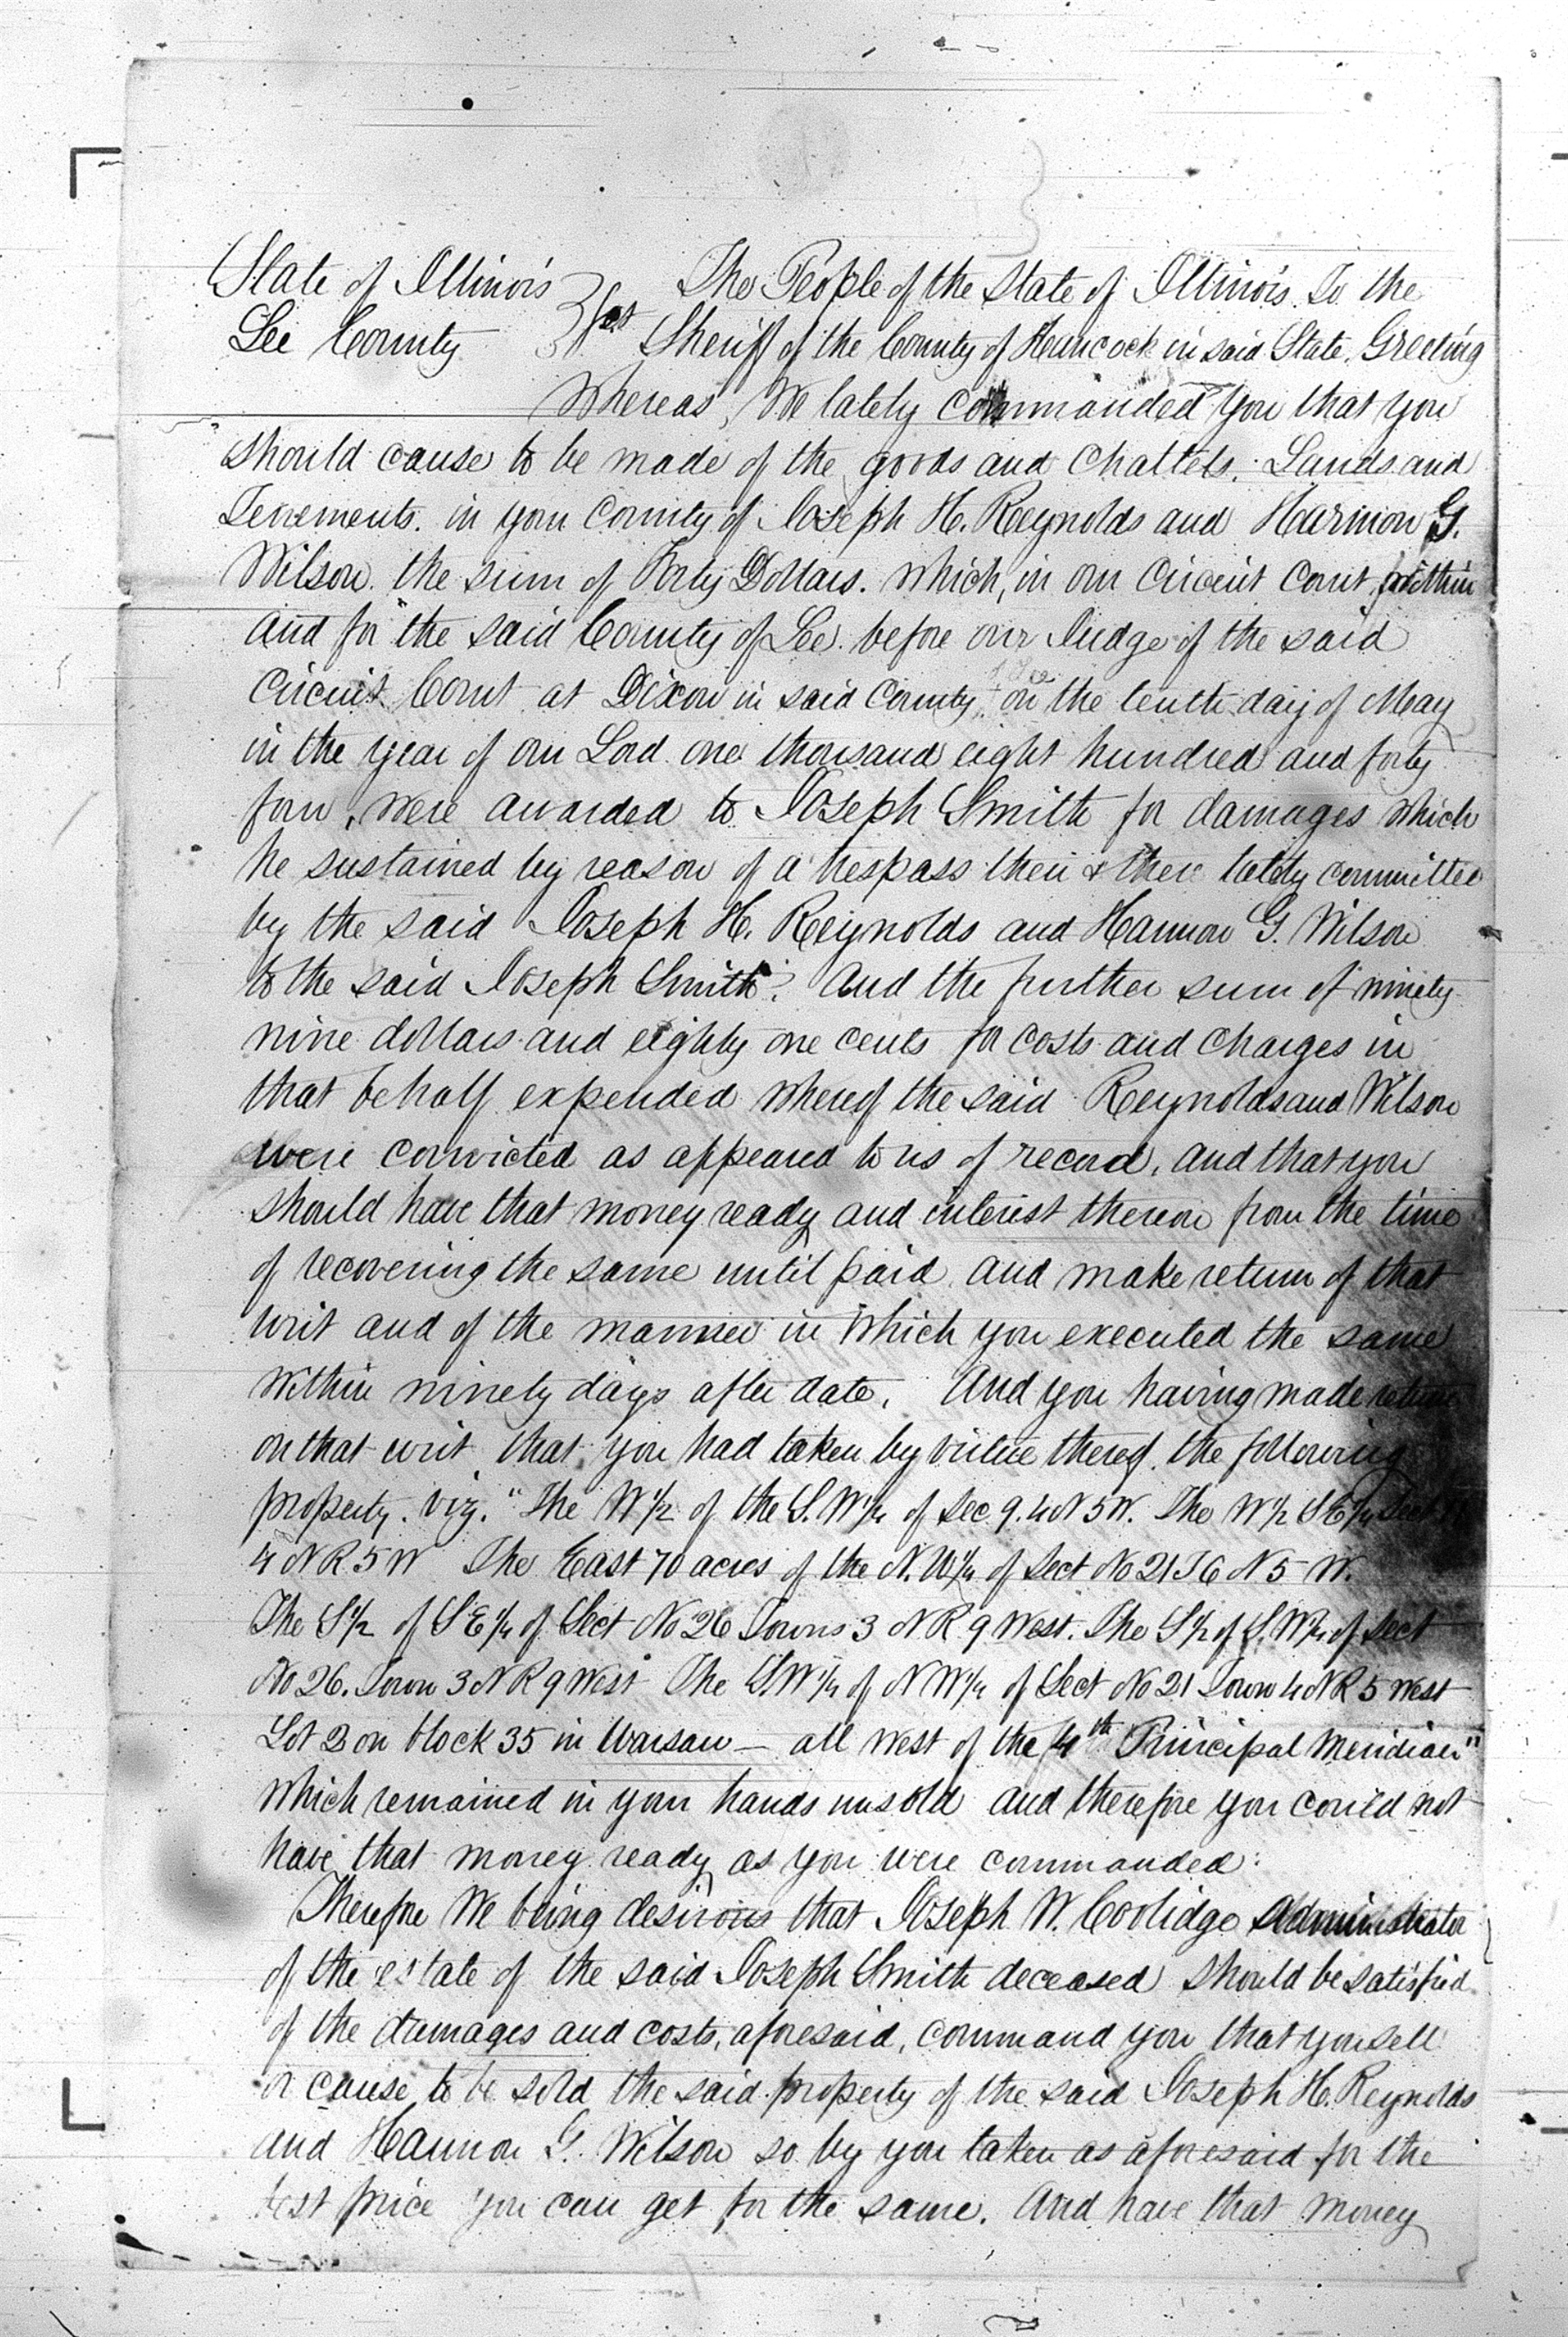 State of Illinois } sct The People of the State of Illinois. To the
Lee County Sheriff of the County of Hancock in said State, Greeting
Whereas, We lately commanded you that you
should cause to be made of the goods and Chattels. Lands and
Tenements. in your County of Joseph H. Reynolds and Harmon G.
Wilson. the sum of Forty Dollars. which, in our Circuit Court, within
and for the said County of Lee. before our Judge of the said
Circuit Court at Dixon in said County, on the tenth day of May
in the year of our Lord one thousand eight hundred and forty
four, were awarded to Joseph Smith for damages which
he sustained by reason of a trespass then & there lately committed
by the said Joseph H. Reynolds and Harmon G. Wilson
to the said Joseph Smith. And the further sum of ninety
nine dollars and eighty one cents for costs and charges in
that behalf expended whereof the said Reynolds and Wilson
were convicted as appeared to us of record, and that you
should have that money ready and interest thereon from the time
of recovering the same until paid and make return of that
writ and of the manner in which you executed the same
within ninety days after date. And you having made return
on that writ that you had taken by virtue thereof the following
property. viz. "The W 1/2 of the S. W 1/4 of Sec 9. 4 N 5 W. The W 1/2 S E 1/4 Sect
4 N R 5 W The East 70 acres of the N. W 1/4 of Sect No 21 T 6 N 5 W.
The S 1/2 of S E 1/4 of Sect No 26 Towns 3 N R 9 West. The S 1/2 of S. W 1/4 of Sect
No 26. Town 3 N R 9 West The S W 1/4 of N W 1/4 of Sect No 21 Town 4 N R 5 West
Lot 2 on block 35 in Warsaw — all west of the 4th Principal Meridian"
which remained in your hands unsold and therefore you could not
have that money ready as you were commanded:
Therefore We being desirous that Joseph W. Coolidge administrator
of the estate of the said Joseph Smith deceased should be satisfied
of the damages and costs, aforesaid, command you that you sell
or cause to be sold the said property of the said Joseph H. Reynolds
and Harmon G. Wilson so by you taken as aforesaid for the
best price you can get for the same. And have that money